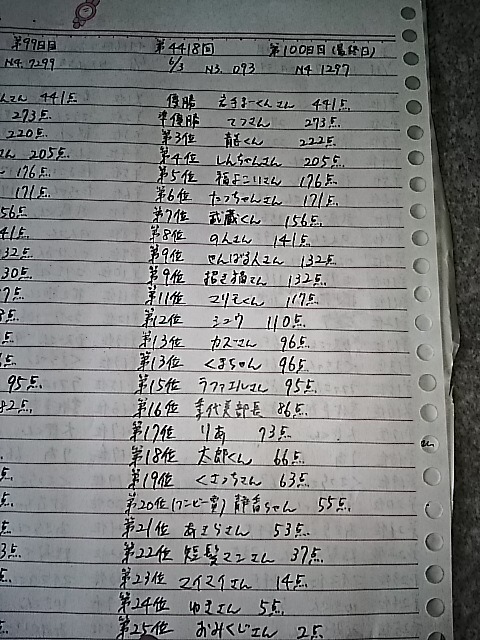 第99日目 第4418回 第100日目(最終日)
N4 7299 6/3 N3. 093 N4 1297
さん 441点 優勝 えきまーくんさん 441点
273点 準優勝 てつさん 273点
220点 第3位 青くん 222点
さん 205点 第4位 しんちゃんさん 205点
176点 第5位 さん 176点
171点 第6位 たっちゃんさん 171点
56点 第7位 武蔵くん 156点
41点 第8位 のんさん 141点
32点 第9位 せんぱるんさん 132点
30点 第9位 招き猫さん 132点
7点 第11位 マリモくん 117点
点 第12位 シュウ 110点
点 第13位 カズーさん 96点
点 第13位 くまちゃん 96点
95点 第15位 ラファエルさん 95点
82点 第16位 美部長 86点
第17位 りあ 73点
第18位 太郎くん 66点
点 第19位 くまっちさん 63点
点 第20位(ブービー賞) 静香ちゃん 55点
点 第21位 あきらさん 53点
3点 第22位 短髪マンさん 37点
点 第23位 マイマイさん 14点
第24位 ゆきさん 5点
第25位 おみくじさん 2点